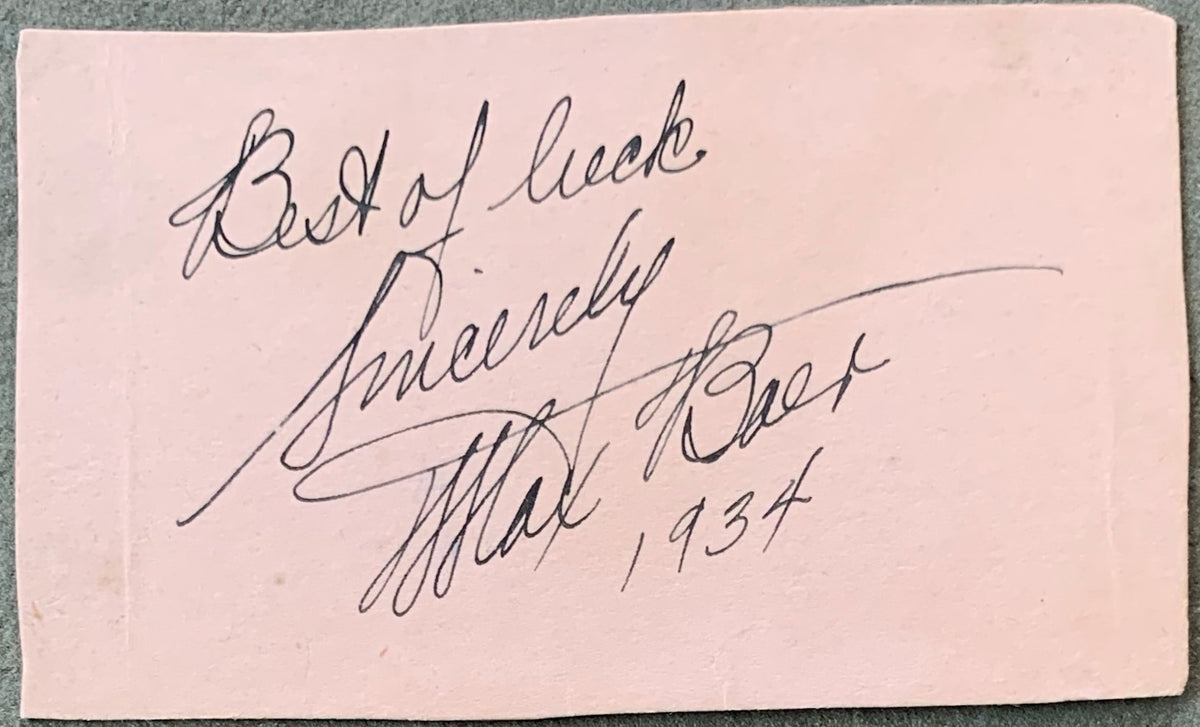 Best of luck
Sincerely
Max Baer
1934